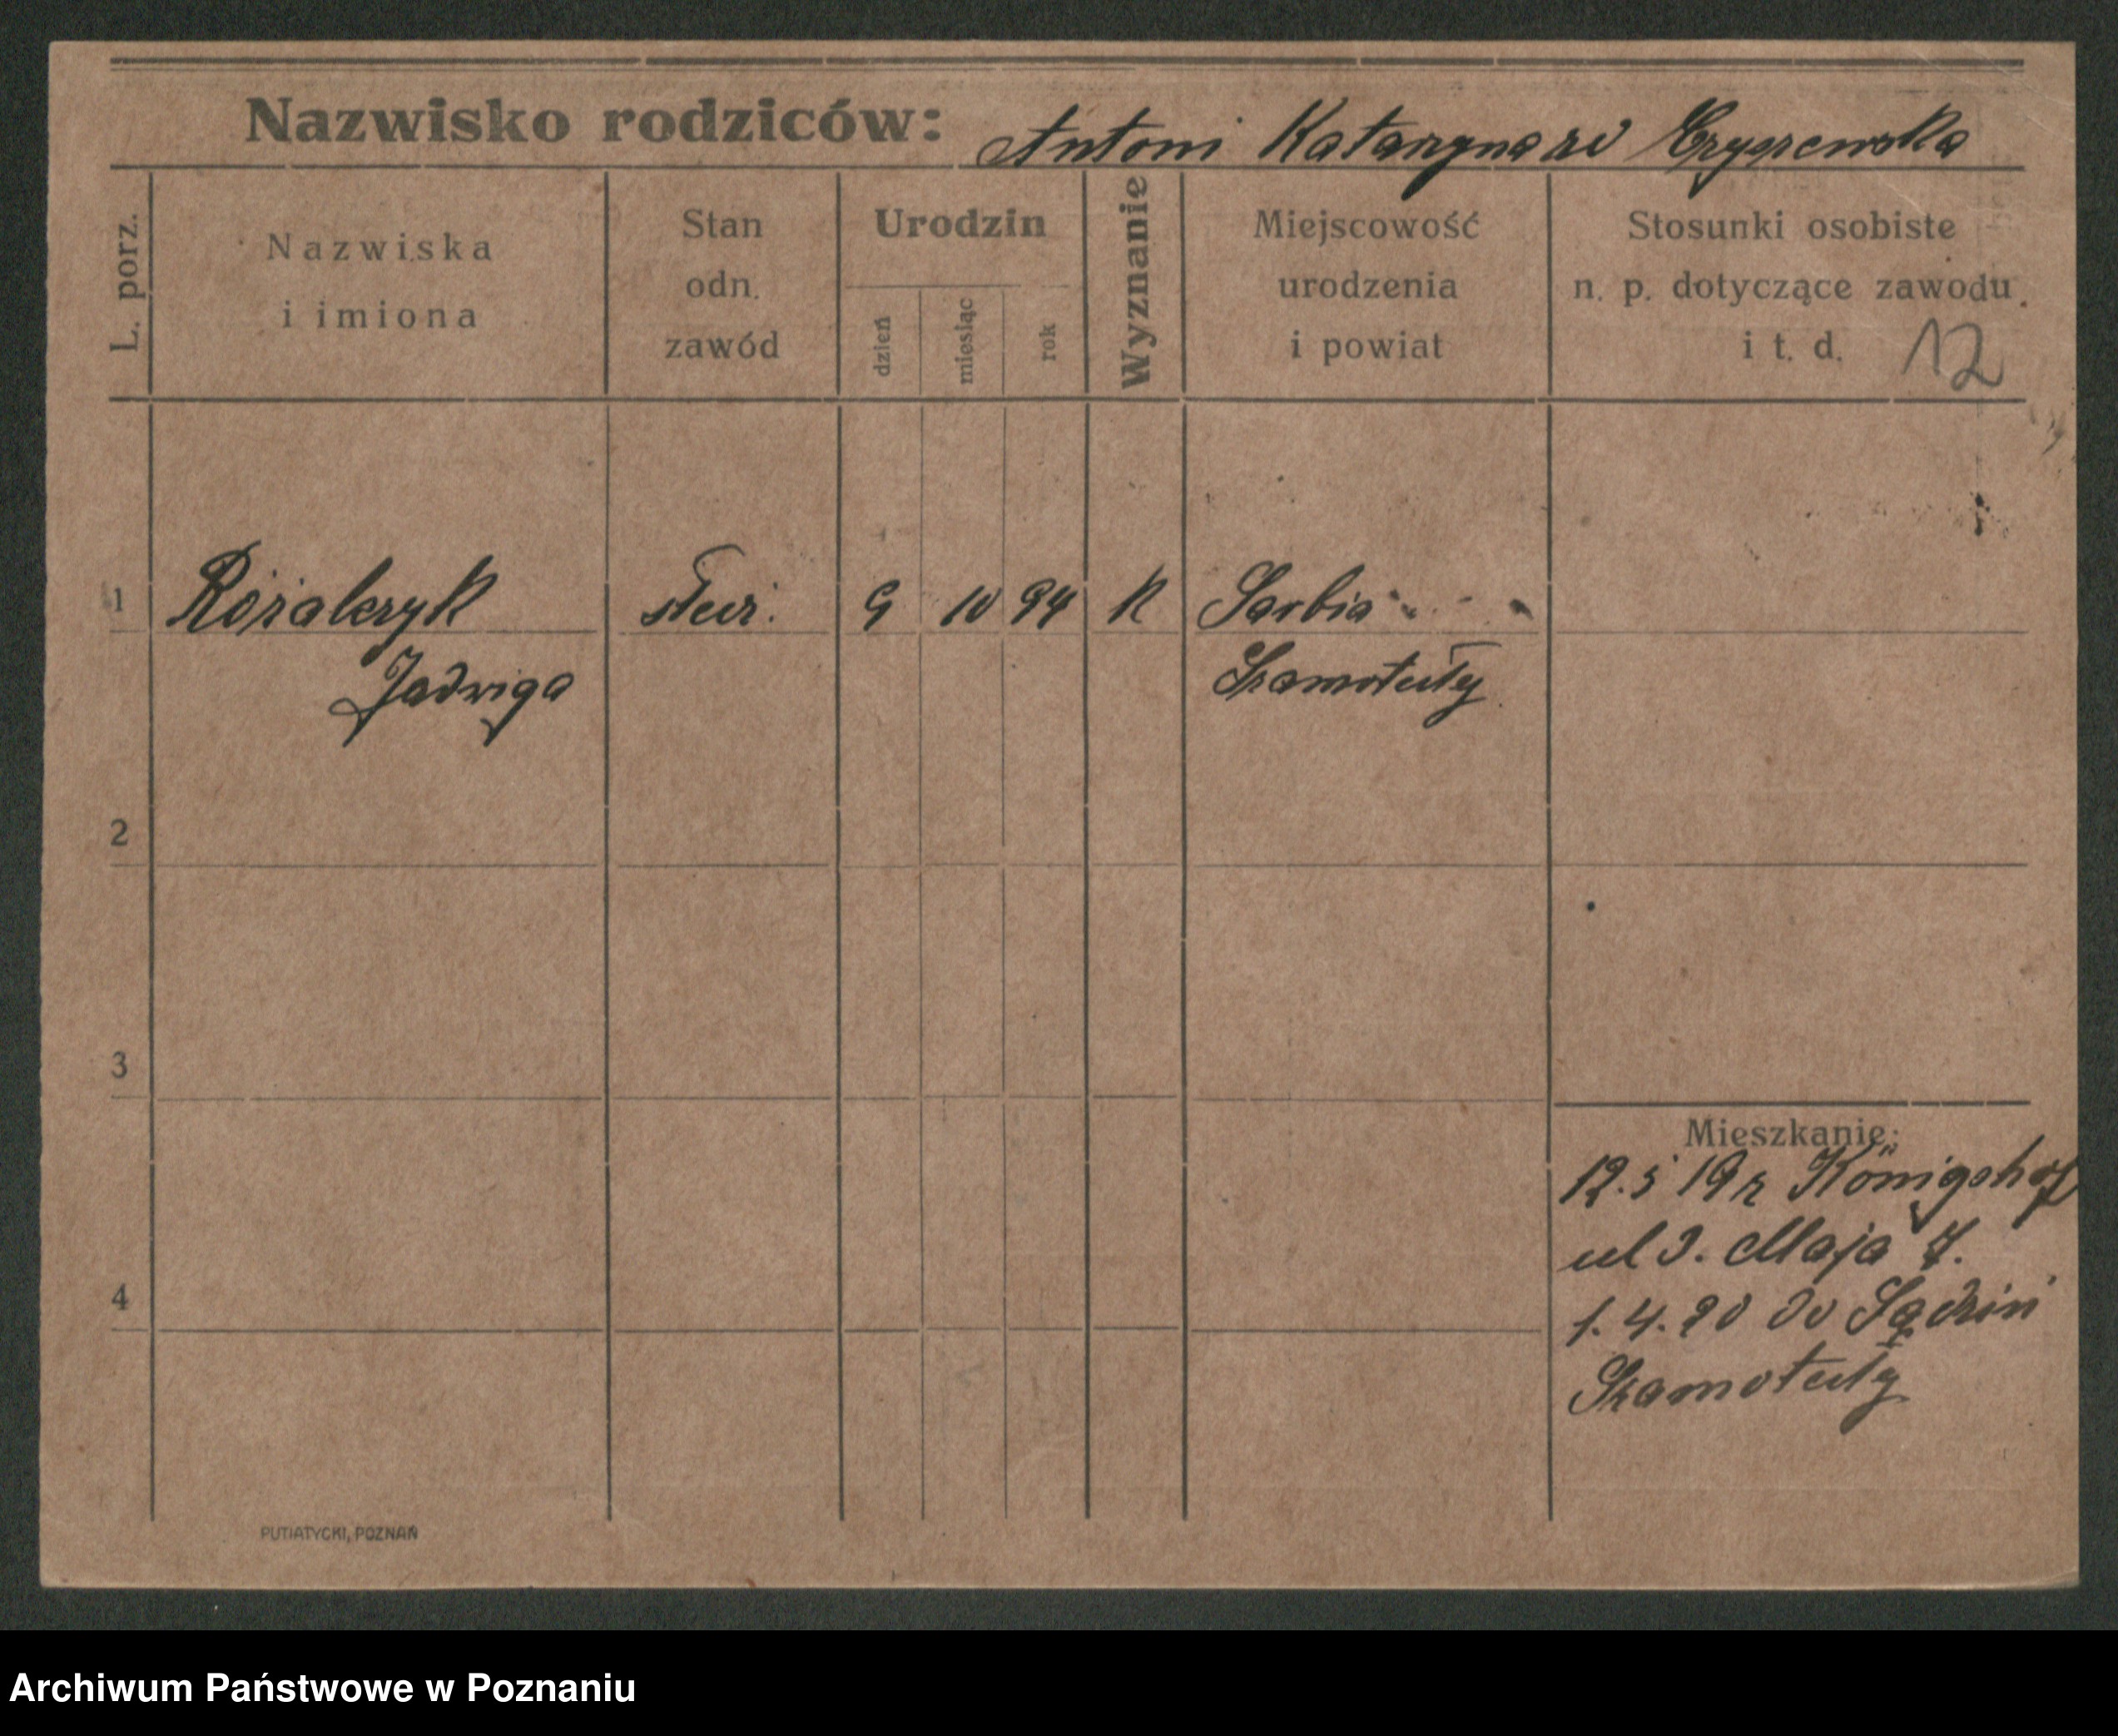 Nazwisko rodziców: Antoni Katarzyna zd
L. porz.
Nazwiska
i imiona
Stan
odn.
zawód
Urodzin
dzień
miesiąc
rok
Wyznanie
Miejscowość
urodzenia
i powiat
Stosunki osobiste
n. p. dotyczące zawodu
i t. d.
12
1 Różalczyk służ. 9 10 94 K Sarbia
Jadwiga Szamotuły
2
3
4
Mieszkanie:
12.5 19 r Königshof
ul 3. Maja 7.
1. 4. 20 do Sądzin
Szamotuły
PUTIATYCKI, POZNAŃ
Archiwum Państwowe w Poznaniu